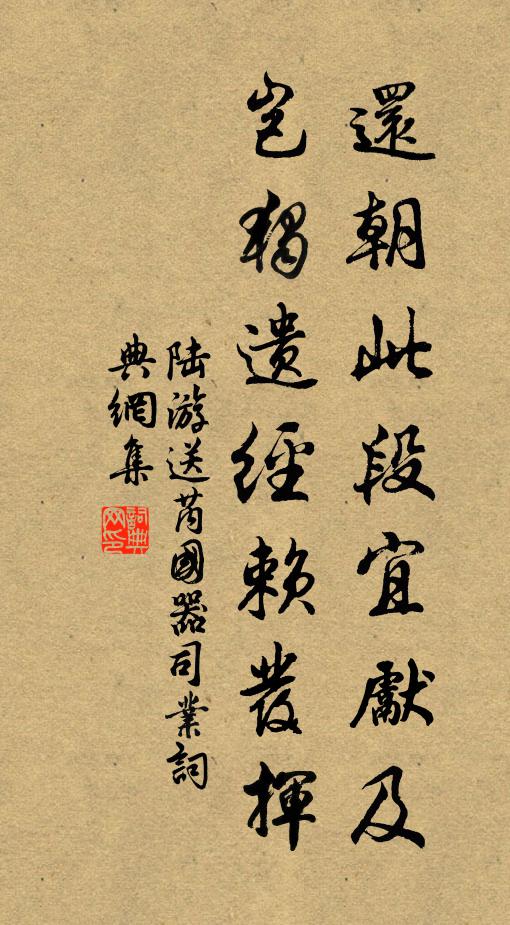 還朝此段宜獻及
豈獨遺經賴發揮
陆游送芮國器司業詞
典網集
詞典
网印